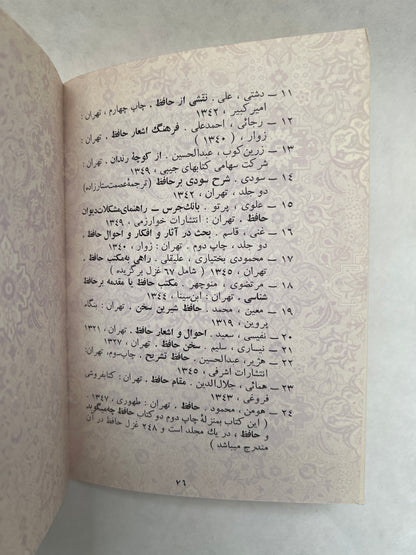 ۱۱ ــ دشتی ، علی . نقشی از حافظ . چاپ چهارم ، تهران :
امیرکبیر ، ۱۳۴۲
۱۲ ــ رجائی ، احمدعلی . فرهنگ اشعار حافظ . تهران :
زوار ، ( ۱۳۴۰ )
۱۳ ــ زرین‌کوب ، عبدالحسین . از کوچهٔ رندان ، تهران :
شرکت سهامی کتابهای جیبی ، ۱۳۴۹
۱۴ ــ سودی . شرح سودی بر حافظ (ترجمهٔ عصمت ستارزاده)
دو جلد ، تهران ، ۱۳۴۲
۱۵ ــ علوی ، پرتو . بانگ جرس ــ راهنمای مشکلات دیوان
حافظ . تهران : انتشارات خوارزمی ، ۱۳۴۹
۱۶ ــ غنی ، قاسم . بحث در آثار و افکار و احوال حافظ .
دو جلد ، چاپ دوم . تهران : زوار ، ۱۳۴۰
۱۷ ــ محمودی بختیاری ، علیقلی . راهی به مکتب حافظ .
تهران ، ۱۳۴۵ ( شامل ۶۷ غزل برگزیده )
۱۸ ــ مرتضوی ، منوچهر . مکتب حافظ یا مقدمه بر حافظ
شناسی . تهران : ابن‌سینا ، ۱۳۴۴
۱۹ ــ معین ، محمد . حافظ شیرین سخن . تهران : بنگاه
پروین ، ۱۳۱۹
۲۰ ــ نفیسی ، سعید . احوال و اشعار حافظ . تهران ، ۱۳۲۱
۲۱ ــ نیساری ، سلیم . سخن حافظ . تهران ، ۱۳۲۷
۲۲ ــ هژیر، عبدالحسین . حافظ تشریح . چاپ سوم، تهران:
انتشارات اشرفی ، ۱۳۴۵
۲۳ ــ همائی ، جلال‌الدین . مقام حافظ . تهران : کتابفروشی
فروغی ، ۱۳۴۳
۲۴ ــ هومن ، محمود . حافظ . تهران : طهوری ، ۱۳۴۷
( این کتاب بمنزلهٔ چاپ دوم دو کتاب حافظ چه میگوید
و حافظ ، در یك مجلد است و ۲۴۸ غزل حافظ در آن
مندرج میباشد )
۷۶